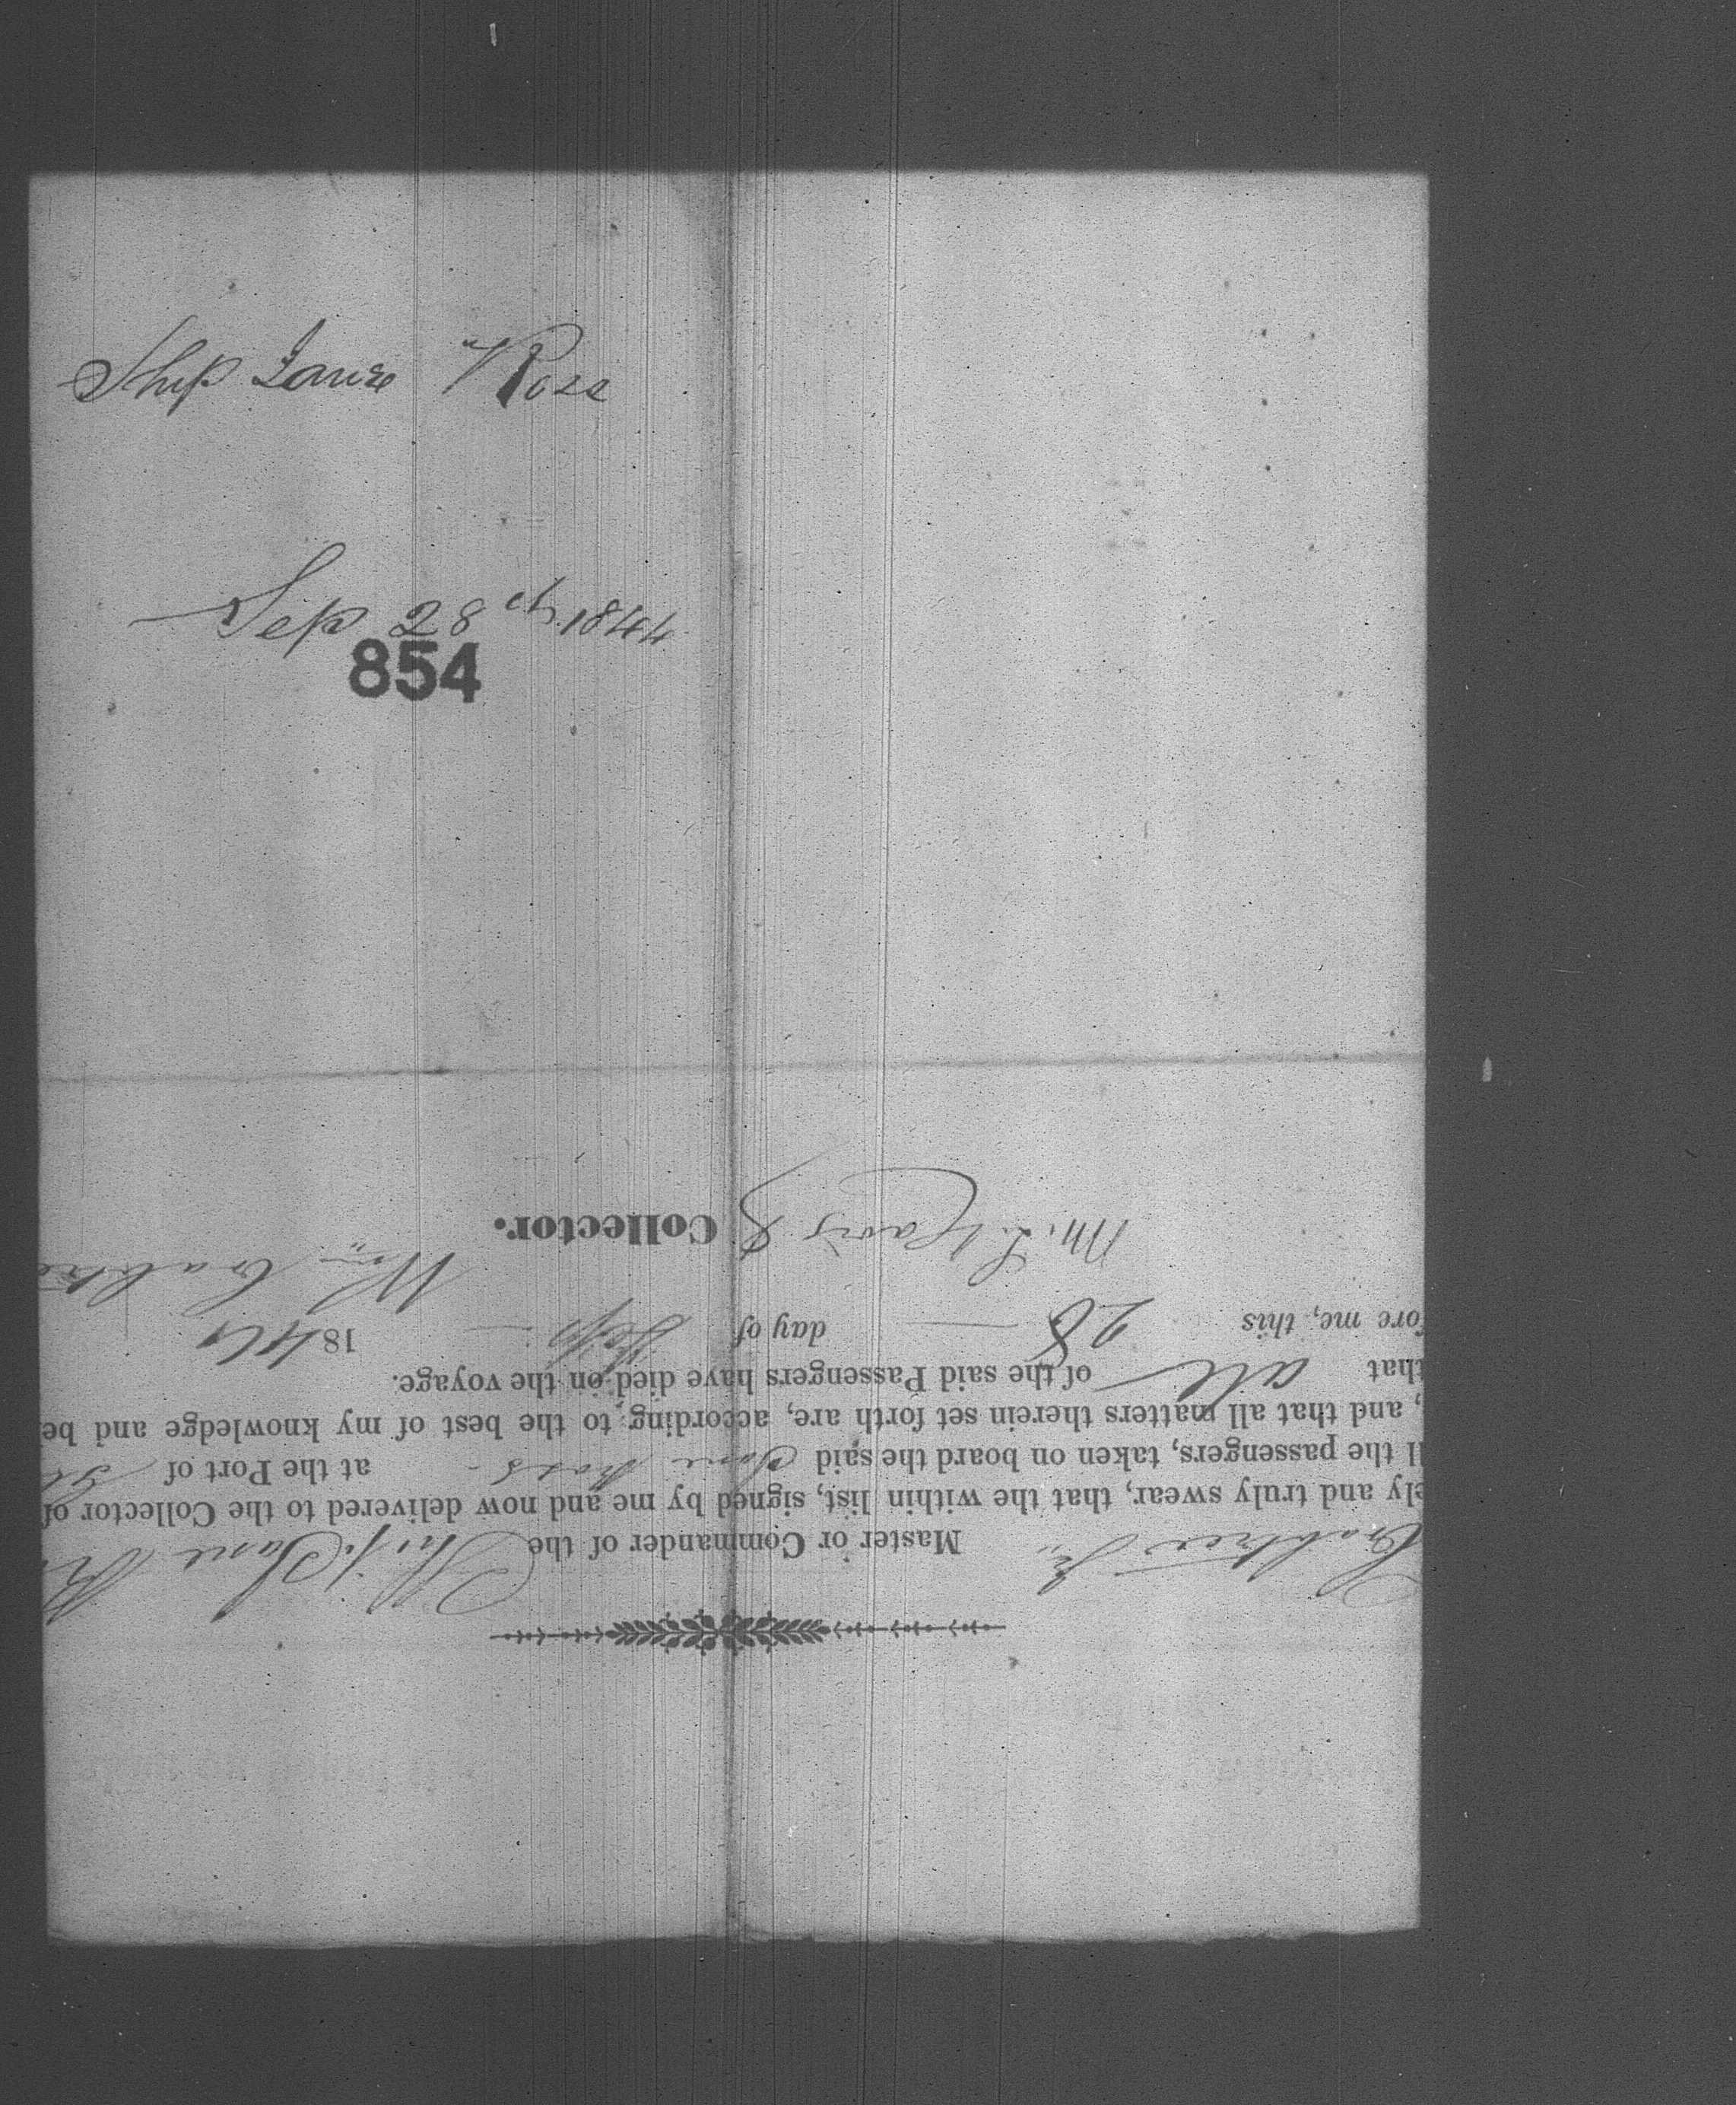 Ship Jane Ross
Sep 28th 1844
854
Crabtree Jr. Master or Commander of the Ship Jane
ely and truly swear, that the within list, signed by me and now delivered to the Collector of
ll the passengers, taken on board the said Jane Ross at the Port of
, and that all matters therein set forth are, according to the best of my knowledge and be
that all of the said Passengers have died on the voyage.
fore me, this 28 day of Sep 1844
Wm Crabtree
Collector.